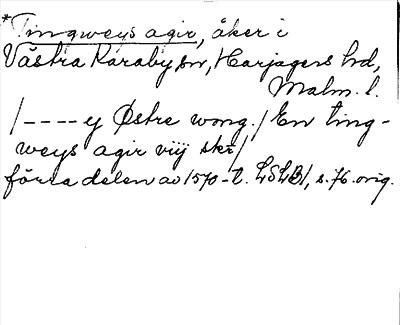 *Tingweys agir, åker i
Västra Karaby sn, Harjagers hd,
Malm. l.
/----y Østre wong./ En ting-
weys agir viij skr/,
förra delen av 1570-t. LSLB1, s. 76. orig.